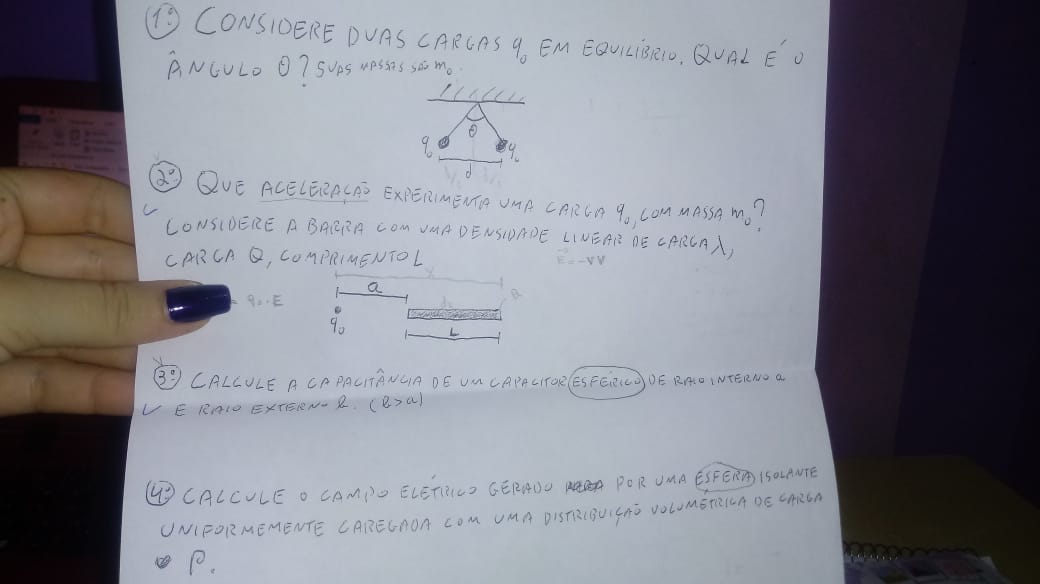 1º) CONSIDERE DUAS CARGAS q₀ EM EQUILÍBRIO. QUAL É O
ÂNGULO θ? SUAS MASSAS SÃO m₀.
θ
q₀ q₀
d
2º) QUE ACELERAÇÃO EXPERIMENTA UMA CARGA q₀, COM MASSA m₀?
CONSIDERE A BARRA COM UMA DENSIDADE LINEAR DE CARGA λ,
CARGA Q, COMPRIMENTO L
E = -∇V
x
a
= q₀.E
q₀
L
3º) CALCULE A CAPACITÂNCIA DE UM CAPACITOR ESFÉRICO DE RAIO INTERNO a
E RAIO EXTERNO b. (b>a)
4º) CALCULE O CAMPO ELÉTRICO GERADO POR UMA ESFERA ISOLANTE
UNIFORMEMENTE CAREGADA COM UMA DISTRIBUIÇÃO VOLUMÉTRICA DE CARGA
ρ.